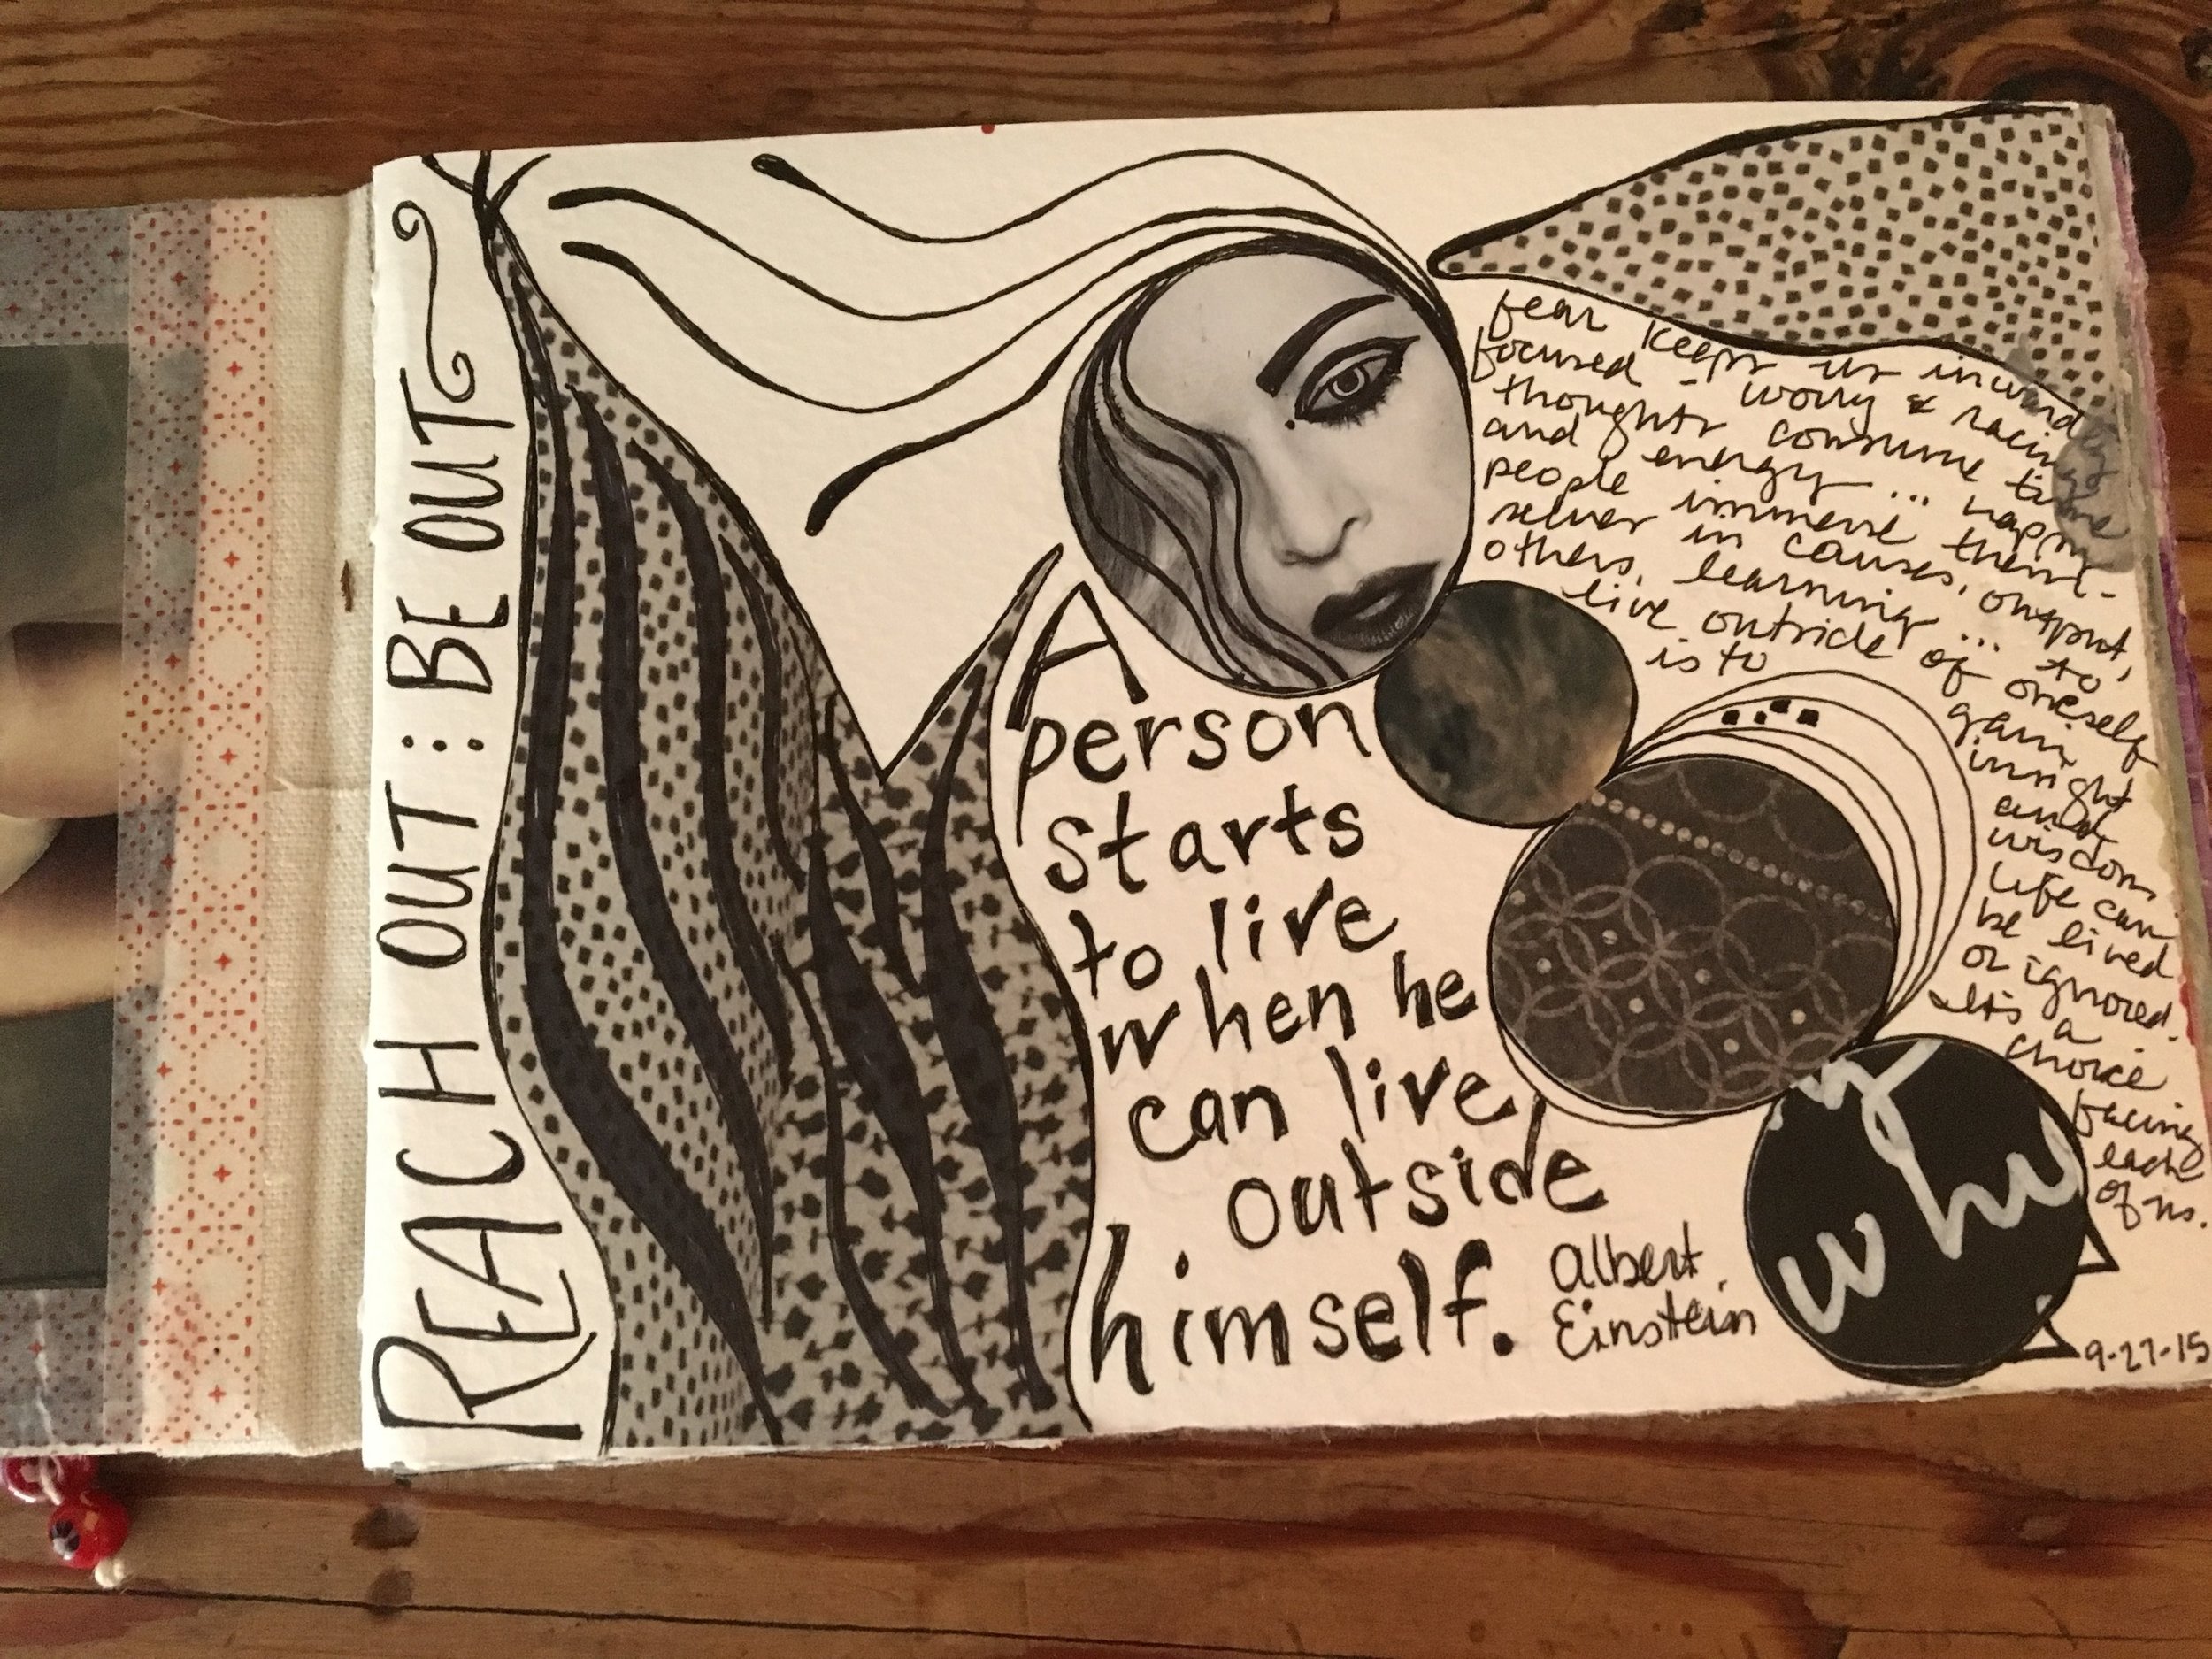 REACH OUT : BE OUT
A
person
starts
to live
when he
can live
outside
himself.
Albert
Einstein
fear keeps us inward
focused - worry & racing
thoughts consume time
and energy ... happy
people immerse them-
selves in causes, output,
others, learning ... to
live outside of oneself
is to gain
insight
and
wisdom
life can
be lived
or ignored.
It's a
choice
facing
each
of us.
who
9-27-15